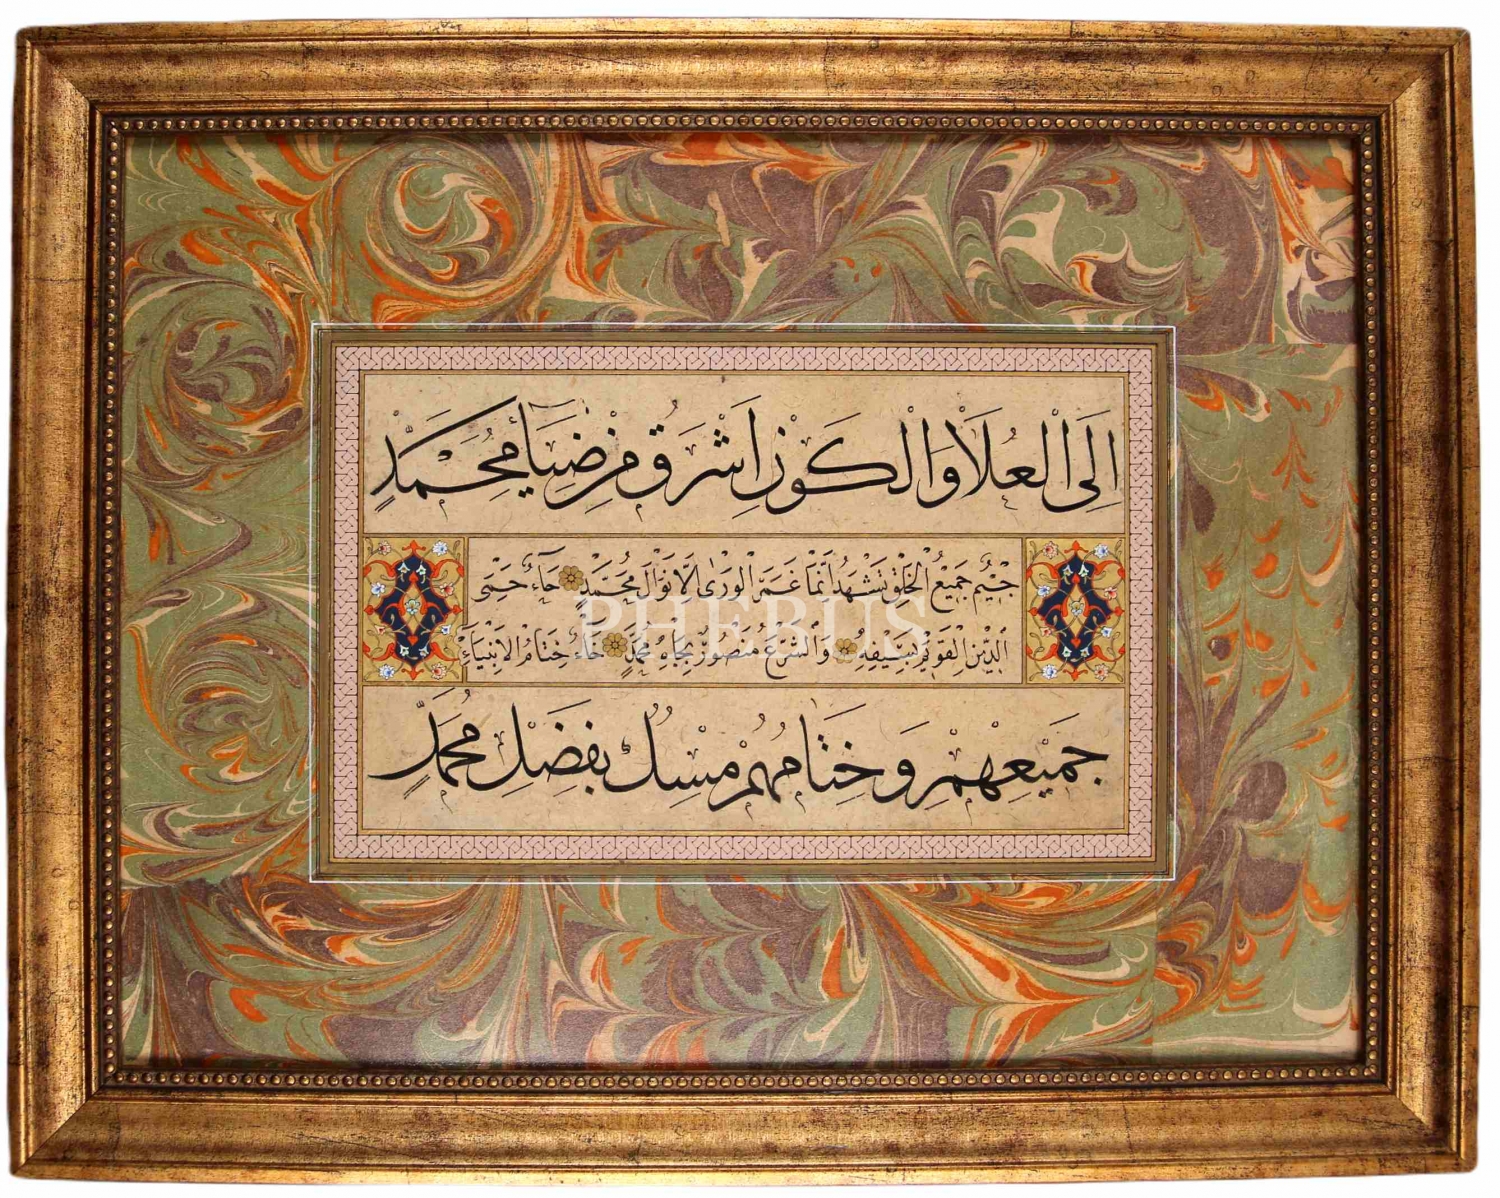 اِلَى الْعُلَا وَالْكَوْنُ اَشْرَقَ مِنْ ضِيَاءِ مُحَمَّدٍ
جيمٌ جَمِيعُ الْخَلْقِ تَشْهَدُ اَنَّمَا عَمَّ الْوَرٰى اِلَّا نَوَالُ مُحَمَّدٍ حَاءٌ حَمَى
الدِّينَ الْقَوِيمَ بِسَيْفِهِ وَالشَّرْعُ مَنْصُورٌ بِجَاهِ مُحَمَّدٍ خَاءٌ خِتَامُ الْاَنْبِيَاءِ
PHEBUS
جَمِيعِهِمْ وَخِتَامُهُمْ مِسْكٌ بِفَضْلِ مُحَمَّدٍ